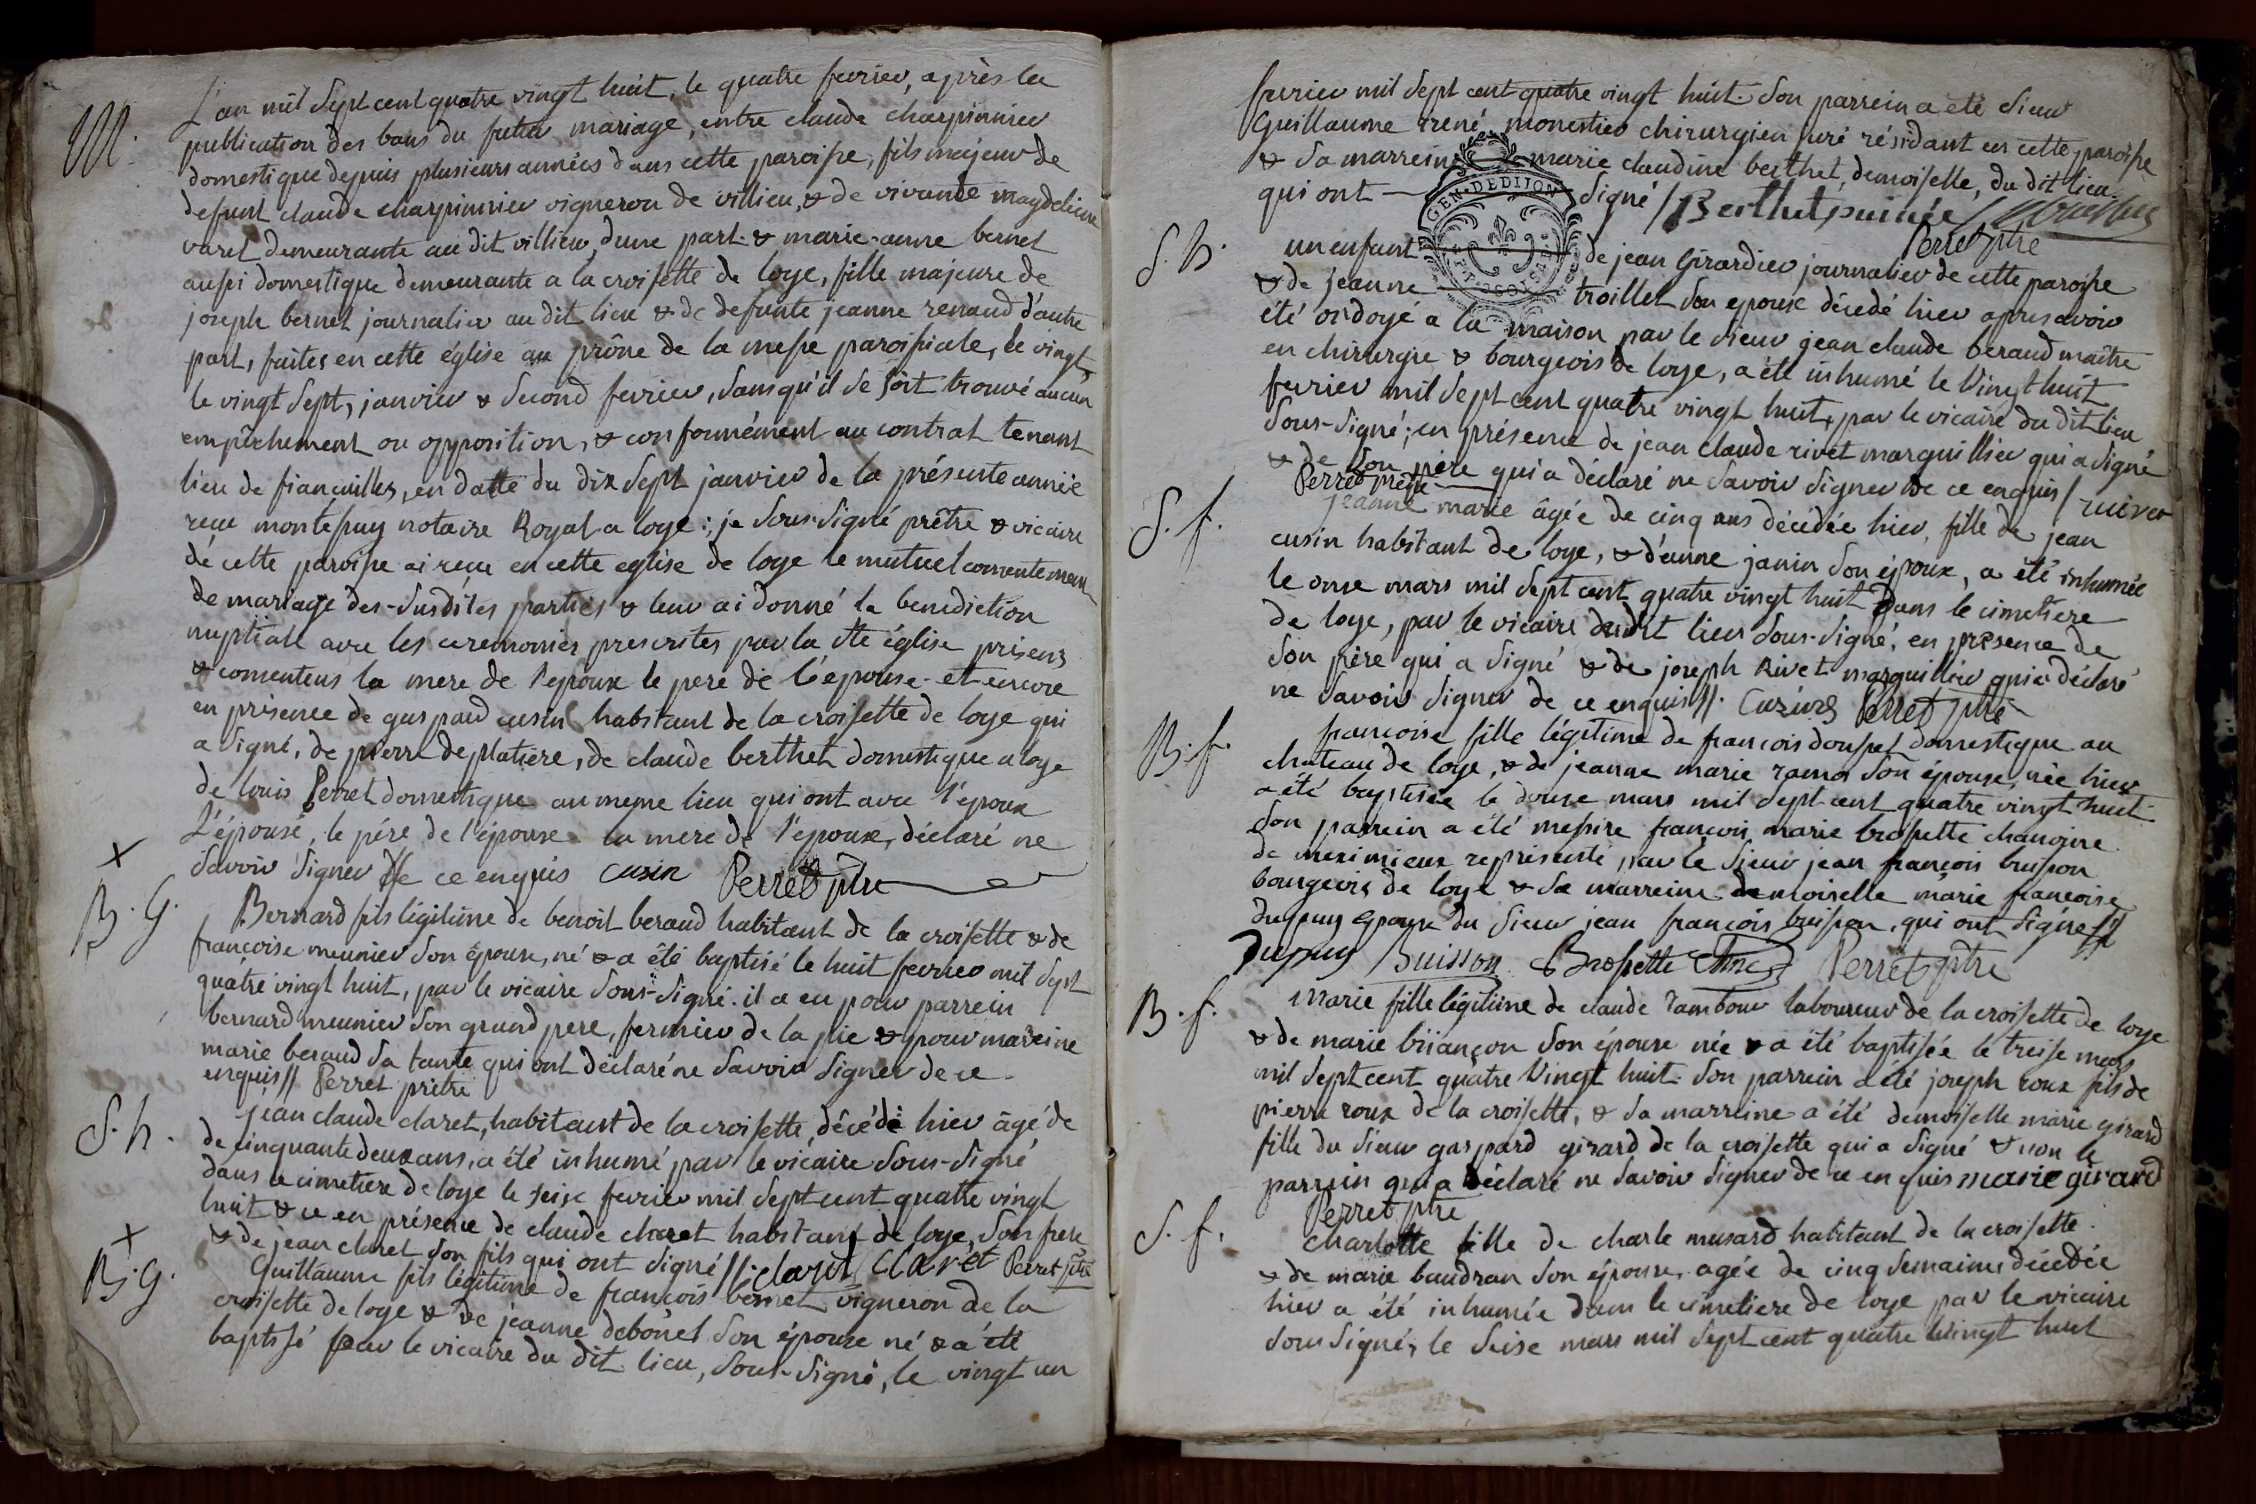 M.
L'an mil sept cent quatre vingt huit, le quatre fevrier, après la
publication des bans du futur mariage, entre claude charpinnier
domestique depuis plusieurs années dans cette paroisse, fils majeur de
defunt claude charpinnier vigneron de villieu, & de vivante magdeleine
varet demeurante au dit villieu, d'une part & marie-anne bernet
aussi domestique demeurante a la croisette de loye, fille majeure de
joseph bernet journalier au dit lieu & de defunte jeanne renaud d'autre
part, faites en cette église au prône de la messe paroissiale, le vingt,
le vingt sept, janvier & second fevrier, sans qu'il se soit trouvé aucun
empêchement ou opposition, & conformément au contrat tenant
lieu de fiançailles, en datte du dix sept janvier de la présente année
reçu montessuy notaire Royal a loye; je sous-signé prêtre & vicaire
de cette paroisse ai reçu en cette eglise de loye le mutuel consentement
de mariage des-susdites parties & leur ai donné la benediction
nuptiale avec les ceremonies prescrites par la ste église présens
& consentens la mere de l'epoux le pere de l'épouse et encore
en présence de gaspard cusin habitant de la croisette de loye qui
a signé, de pierre deplatiere, de claude berthet domestique a loye
de louis Perret domestique au meme lieu qui ont avec l'époux
L'épouse, le pére de l'épouse la mere de l'epoux, déclaré ne
savoir signer de ce enquis cusin Perret ptre
X
B. G.
Bernard fils légitime de benoit beraud habitant de la croisette & de
françoise meunier son épouse, né & a été baptisé le huit fevrier mil sept
quatre vingt huit, par le vicaire sous-signé. il a eu pour parrein
bernard meunier son grand pere, fermier de la pie & pour mareine
marie beraud sa tante qui ont déclaré ne savoir signer de ce
enquis // Perret prêtre
S. h.
jean claude claret, habitant de la croisette, décédé hier âgé de
de cinquante deux ans, a été inhumé par le vicaire sous-signé
dans le cimetiere de loye le seise fevrier mil sept cent quatre vingt
huit & ce en présence de claude claret habitant de loye, son frere
& de jean claret son fils qui ont signé //. claret Claret Perret ptre
X
B. g.
Guillaume fils légitime de françois bernet vigneron de la
croisette de loye & de jeanne debonet son épouse né & a été
baptisé par le vicaire du dit lieu, sous-signé, le vingt un
fevrier mil sept cent quatre vingt huit. son parrein a été sieur
Guillaume rrené monestier chirurgien juré résidant en cette paroisse
& sa marreine marie claudine berthet, demoiselle, du dit lieu
qui ont signé / Berthet puinée /
Perret ptre
GEN. DE DIJON
S. h.
un enfant de jean Girardier journalier de cette paroisse
& de jeanne troillet son epouse décedé hier apres avoir
été ondoyé a la maison par le sieur jean claude beraud maître
en chirurgie & bourgeois de loye, a été inhumé le vingt huit
fevrier mil sept cent quatre vingt huit, par le vicaire du dit lieu
sous-signé; en présence de jean claude rivet marguillier qui a signé
& de son père qui a déclaré ne savoir signer de ce enquis / rivet
Perret prêtre
S. f.
jeanne marie âgée de cinq ans décédée hier, fille de jean
cusin habitant de loye, & d'anne janin son époux, a été inhumée
le onse mars mil sept cent quatre vingt huit dans le cimetiere
de loye, par le vicaire dudit lieu sous-signé, en présence de
son père qui a signé & de joseph Rivet marguillier qui a déclaré
ne savoir signer de ce enquis //. Cuzin Perret ptre
B. f.
françoise fille légitime de françois dousset domestique au
chateau de loye, & de jeanne marie ramo son épouse, née hier
a été baptisée le douse mars mil sept cent quatre vingt huit
son parrein a été messire françois marie brossette chanoine
de meximieux représenté par le sieur jean françois buisson
bourgeois de loye & sa marreine demoiselle marie françoise
dupuy epouse du sieur jean françois buisson, qui ont signé //
Dupuy / Buisson Brossette Perret ptre
B. f.
Marie fille légitime de claude rambour laboureur de la croisette de loye
& de marie briançon son épouse née & a été baptisée le treise mars
mil sept cent quatre vingt huit. son parrein a été joseph roux fils de
pierre roux de la croisette, & sa marreine a été demoiselle marie girard
fille du sieur gaspard girard de la croisette qui a signé & non le
parrein qui a déclaré ne savoir signer de ce enquis marie girard
Perret ptre
S. f.
Charlotte fille de charle musard habitant de la croisette.
& de marie baudran son épouse, agée de cinq semaines décédée
hier a été inhumée dans le cimetiere de loye par le vicaire
sous signé, le seise mars mil sept cent quatre vingt huit